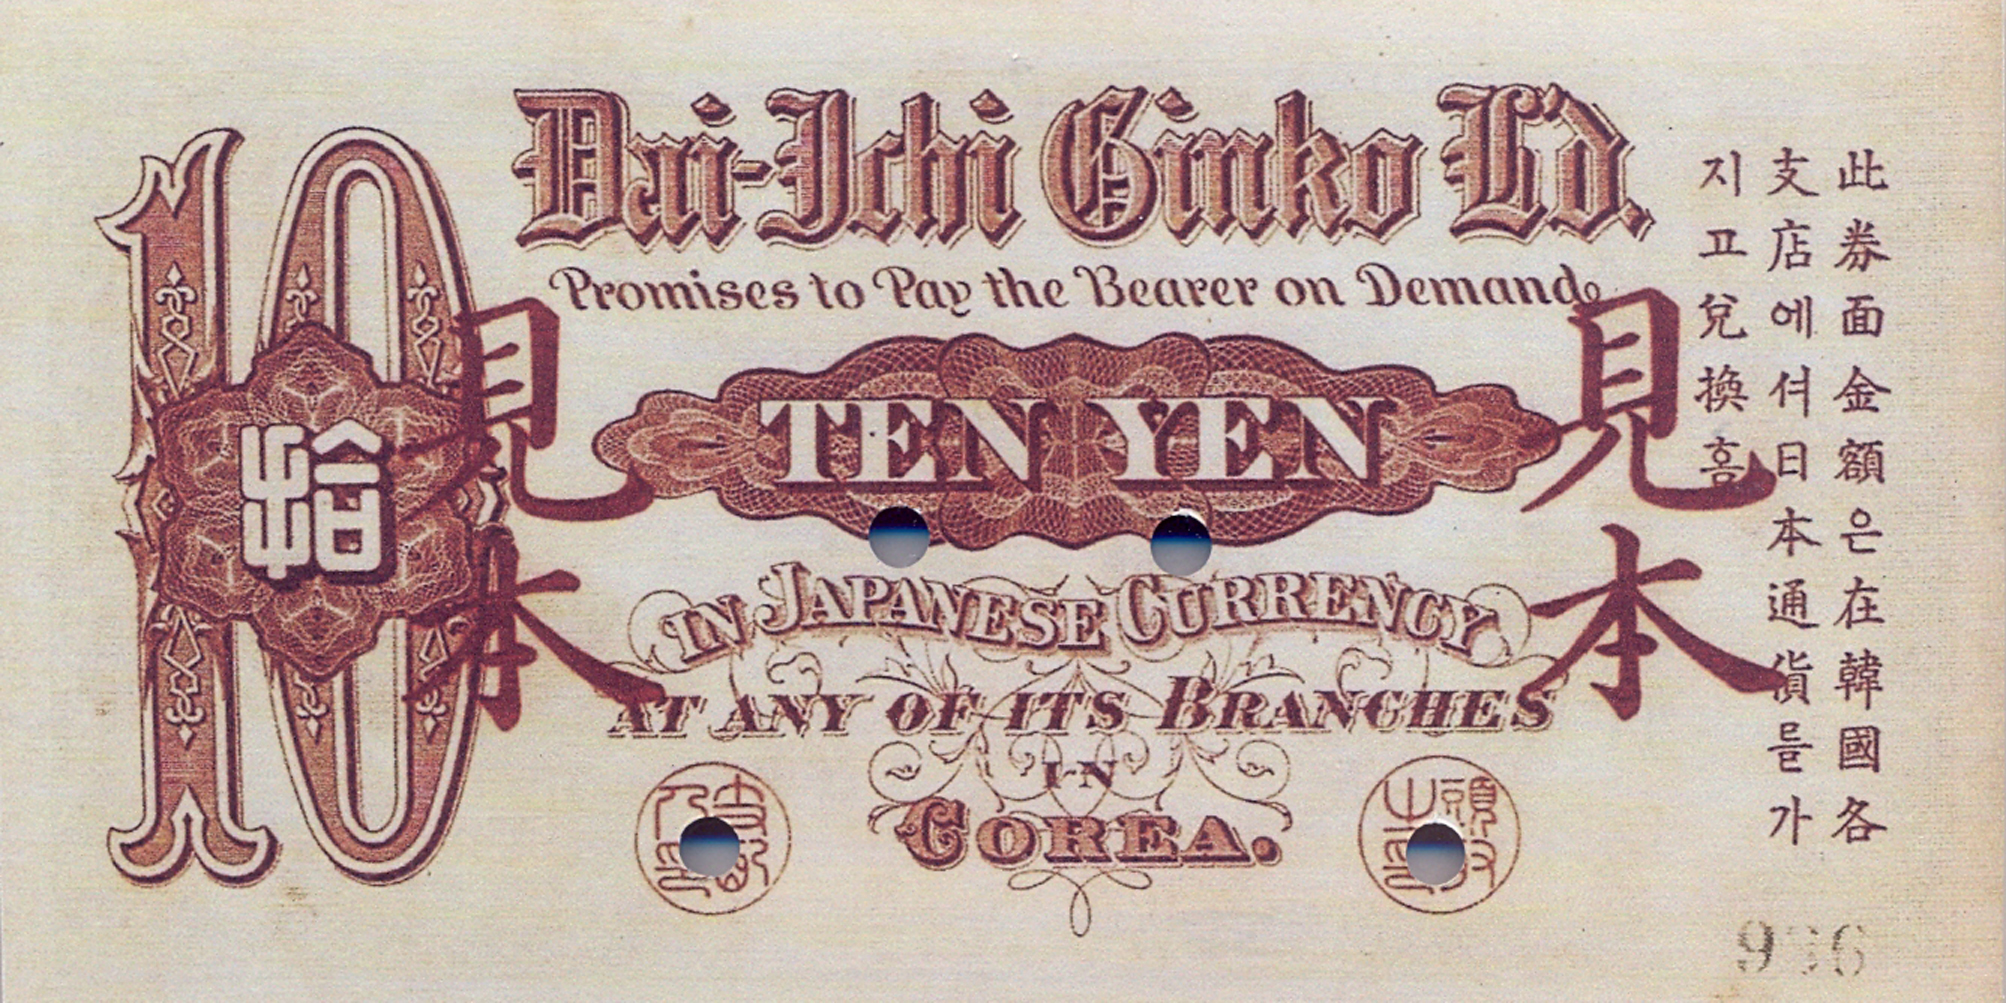 Dai-Ichi Ginko L'd.
Promises to Pay the Bearer on Demand
10
拾
TEN YEN
IN JAPANESE CURRENCY
AT ANY OF ITS BRANCHES
IN
COREA.
見本
見本
此券面金額은在韓國各
支店에셔日本通貨를가
지고兌換홈